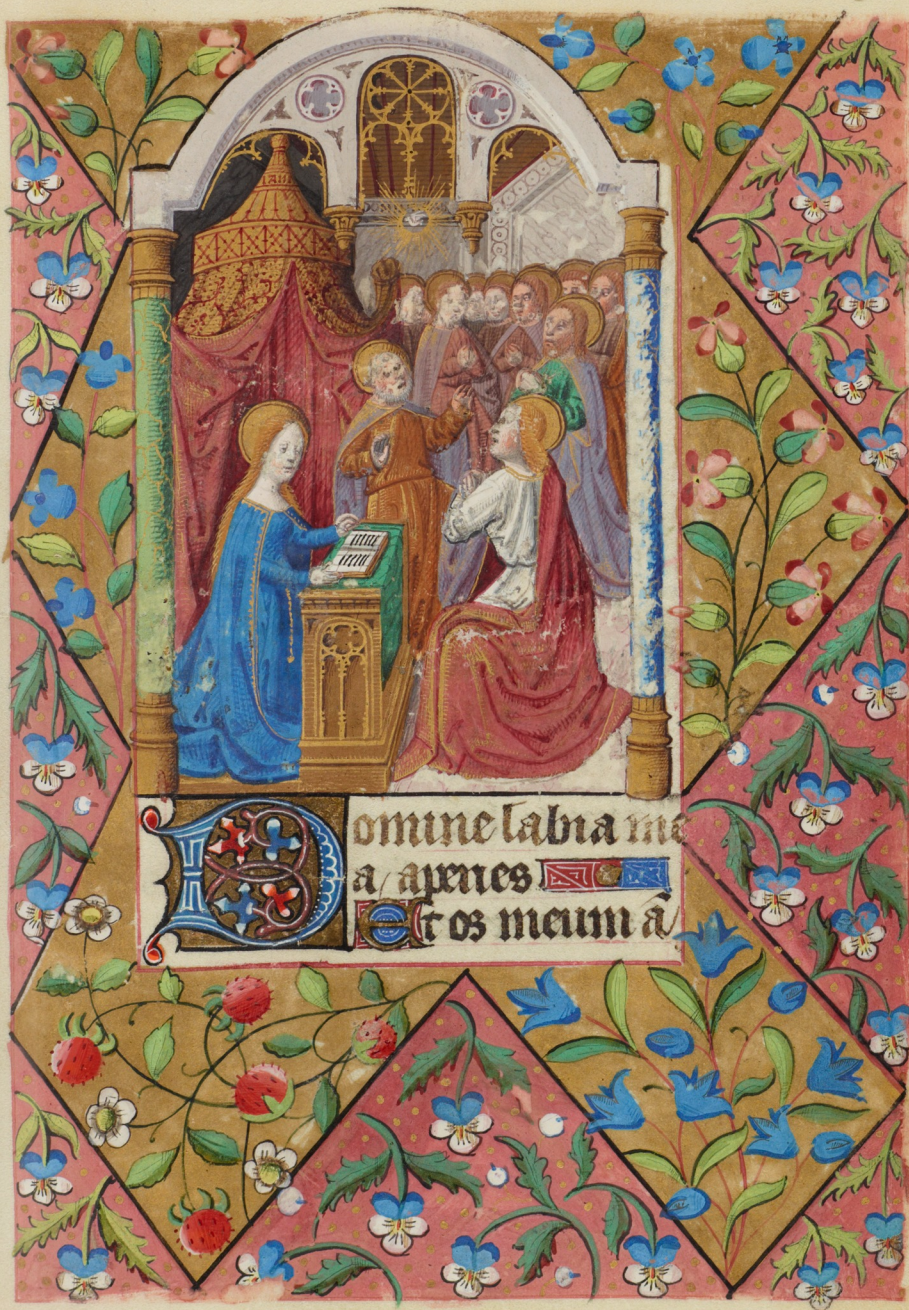 Domine labia me
a aperies
Et os meum ā